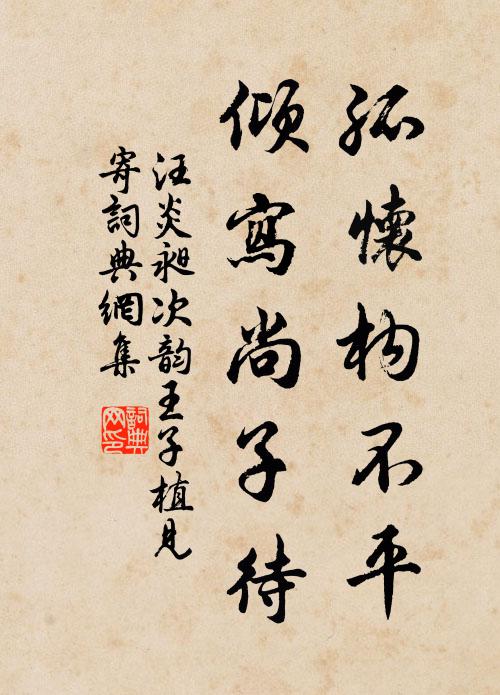 孤懷构不平
傾寫尚子待
汪炎昶次韵王子植見
寄詞典網集
詞典
网印